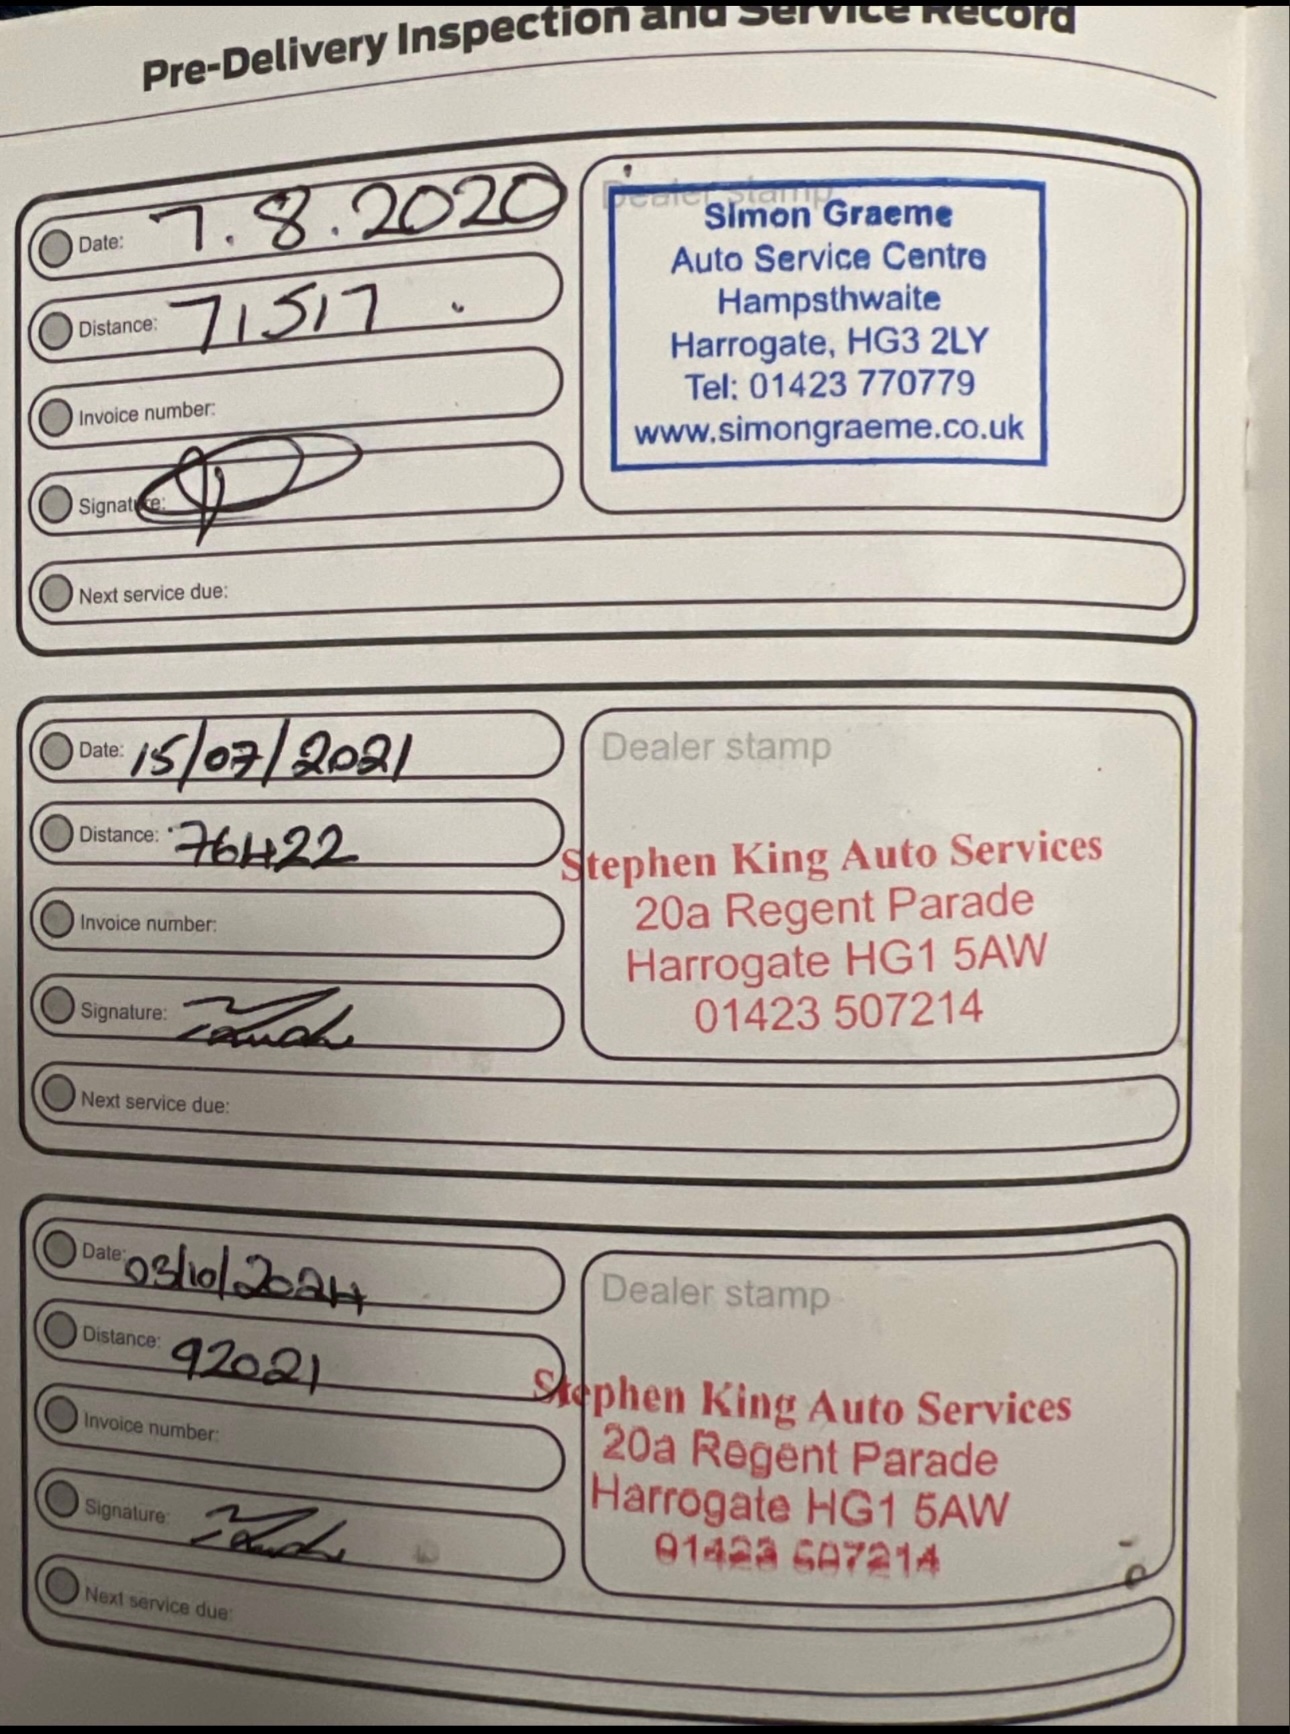 Pre-Delivery Inspection and Service Record
Date: 7.8.2020
Distance: 71517
Invoice number:
Signature:
Next service due:
Dealer stamp
Simon Graeme
Auto Service Centre
Hampsthwaite
Harrogate, HG3 2LY
Tel: 01423 770779
www.simongraeme.co.uk
Date: 15/07/2021
Distance: 76422
Invoice number:
Signature:
Next service due:
Dealer stamp
Stephen King Auto Services
20a Regent Parade
Harrogate HG1 5AW
01423 507214
Date: 03/10/2024
Distance: 92021
Invoice number:
Signature:
Next service due:
Dealer stamp
Stephen King Auto Services
20a Regent Parade
Harrogate HG1 5AW
01423 507214